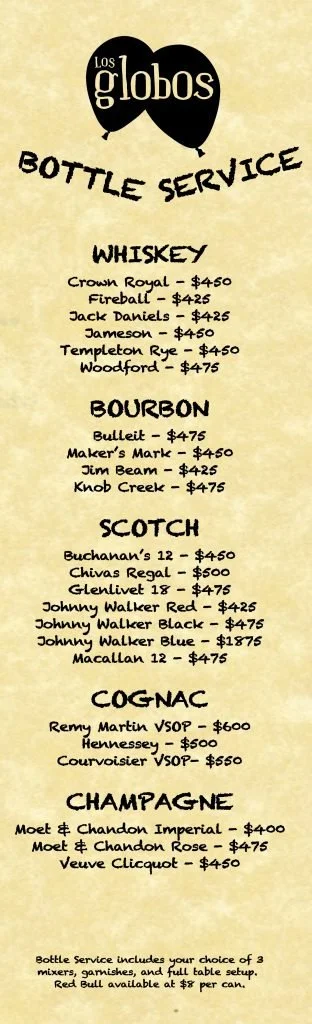 Los
globos
BOTTLE SERVICE
WHISKEY
Crown Royal - $450
Fireball - $425
Jack Daniels - $425
Jameson - $450
Templeton Rye - $450
Woodford - $475
BOURBON
Bulleit - $475
Maker's Mark - $450
Jim Beam - $425
Knob Creek - $475
SCOTCH
Buchanan's 12 - $450
Chivas Regal - $500
Glenlivet 18 - $475
Johnny Walker Red - $425
Johnny Walker Black - $475
Johnny Walker Blue - $1875
Macallan 12 - $475
COGNAC
Remy Martin VSOP - $600
Hennessey - $500
Courvoisier VSOP- $550
CHAMPAGNE
Moet & Chandon Imperial - $400
Moet & Chandon Rose - $475
Veuve Clicquot - $450
Bottle Service includes your choice of 3
mixers, garnishes, and full table setup.
Red Bull available at $8 per can.